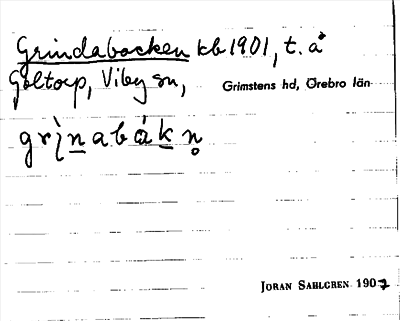 Grindabacken kb 1901, t. å
Göltorp, Viby sn,
Grimstens hd, Örebro län
gri̱nabák̲n̥
JÖRAN SAHLGREN 1907